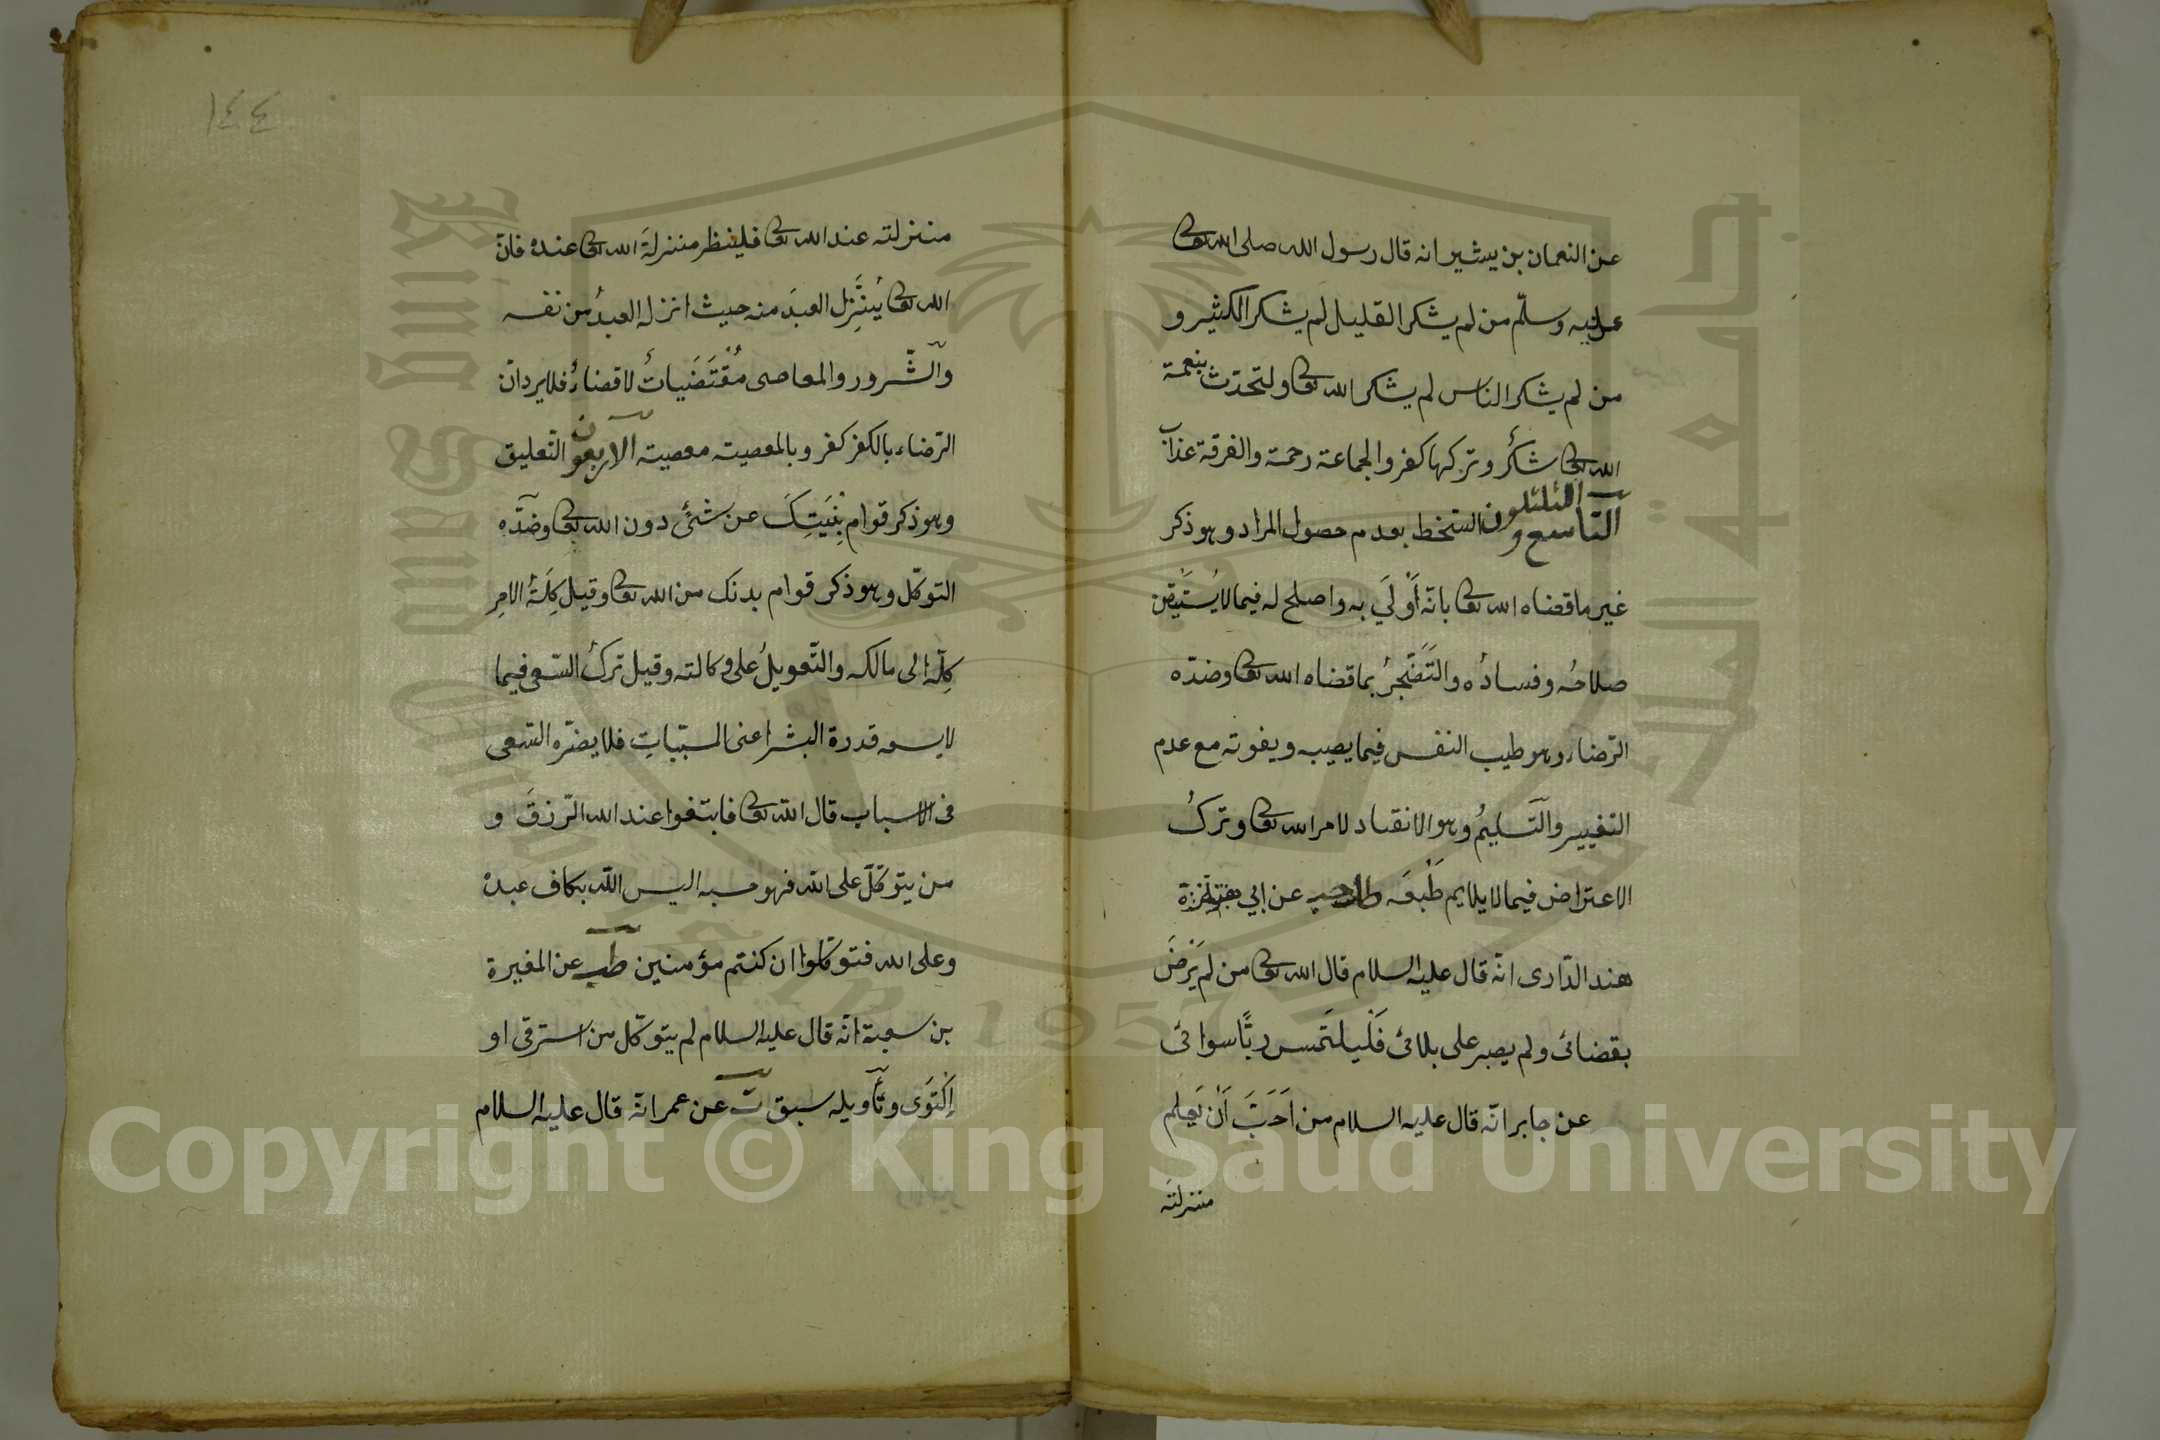 عن النعمان بن بشير انه قال رسول الله صلى الله تعالى
عليه وسلّم من لم يشكر القليل لم يشكر الكثير و
من لم يشكر الناس لم يشكر الله تعالى والتحدّث بنعمة
الله تعالى شكرٌ وتركها كفر والجماعة رحمة والفرقة عذاب
التّاسع والثلثون السّخط بعدم حصول المراد وهو ذكر
غير ما قضاه الله تعالى بانّه أَوْلَى به واصلح له فيما لا يُسْتَيقن
صلاحُه وفسادُه والتَّضَجُّرُ بما قضاه الله تعالى وضدّه
الرّضاء وهو طيب النفس فيما يصيب ويفوته مع عدم
التغيير والتّسليمُ وهو الانقياد لامر الله تعالى وتركُ
الاعتراض فيما لا يلايم طَبْعَه عن ابي
هند الدّارى انّه قال عليه السلام قال الله تعالى من لم يَرْضَ
بقضائى ولم يصبر على بلائى فَلْيلتَمس ربًّا سوائى
عن جابر انّه قال عليه السلام من اَحَبَّ اَنْ يَعلم
منزلتَه
١٤٤
منزلته عند الله تعالى فلينظر منزلةَ الله تعالى عنده فانّ
الله تعالى يُنَزِّل العبدَ منه حيث انزله العبدُ من نفسه
والشّرور والمعاصى مُقْتَضَيات لا قضاءٌ فلا يرد انّ
الرّضاء بالكفر كفر وبالمعصيته معصيته الاربعون التّعليق
وهو ذكر قوام بِنْيَتِكَ عن شئٍ دون الله تعالى وضدّه
التوكّل وهو ذكر قوام بدنك من الله تعالى وقيل كِلَةُ الامرِ
كلّه الى مالكه والتّعويلُ على وكالته وقيل تركُ السّعى فيما
لا يسعه قدرة البشر اعنى المسبّباتِ فلا يضرّه السّعى
فى الاسباب قال الله تعالى فابتغوا عند الله الرّزقَ و
من يتوكّل على الله فهو حسبه اليس الله بكاف عبده
وعلى الله فتوكّلوا ان كنتم مؤمنين طب عن المغيرة
بن سعبة انّه قال عليه السلام لم يتوكّل من استرقى او
اِكْتَوَى وتأويله سبق ت عن عمر انّه قال عليه السلام
جامعة الملك سعود
King Saud University
1957
Copyright © King Saud University